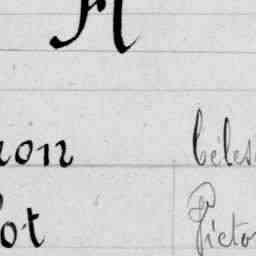 A
non Céles
ot Victo